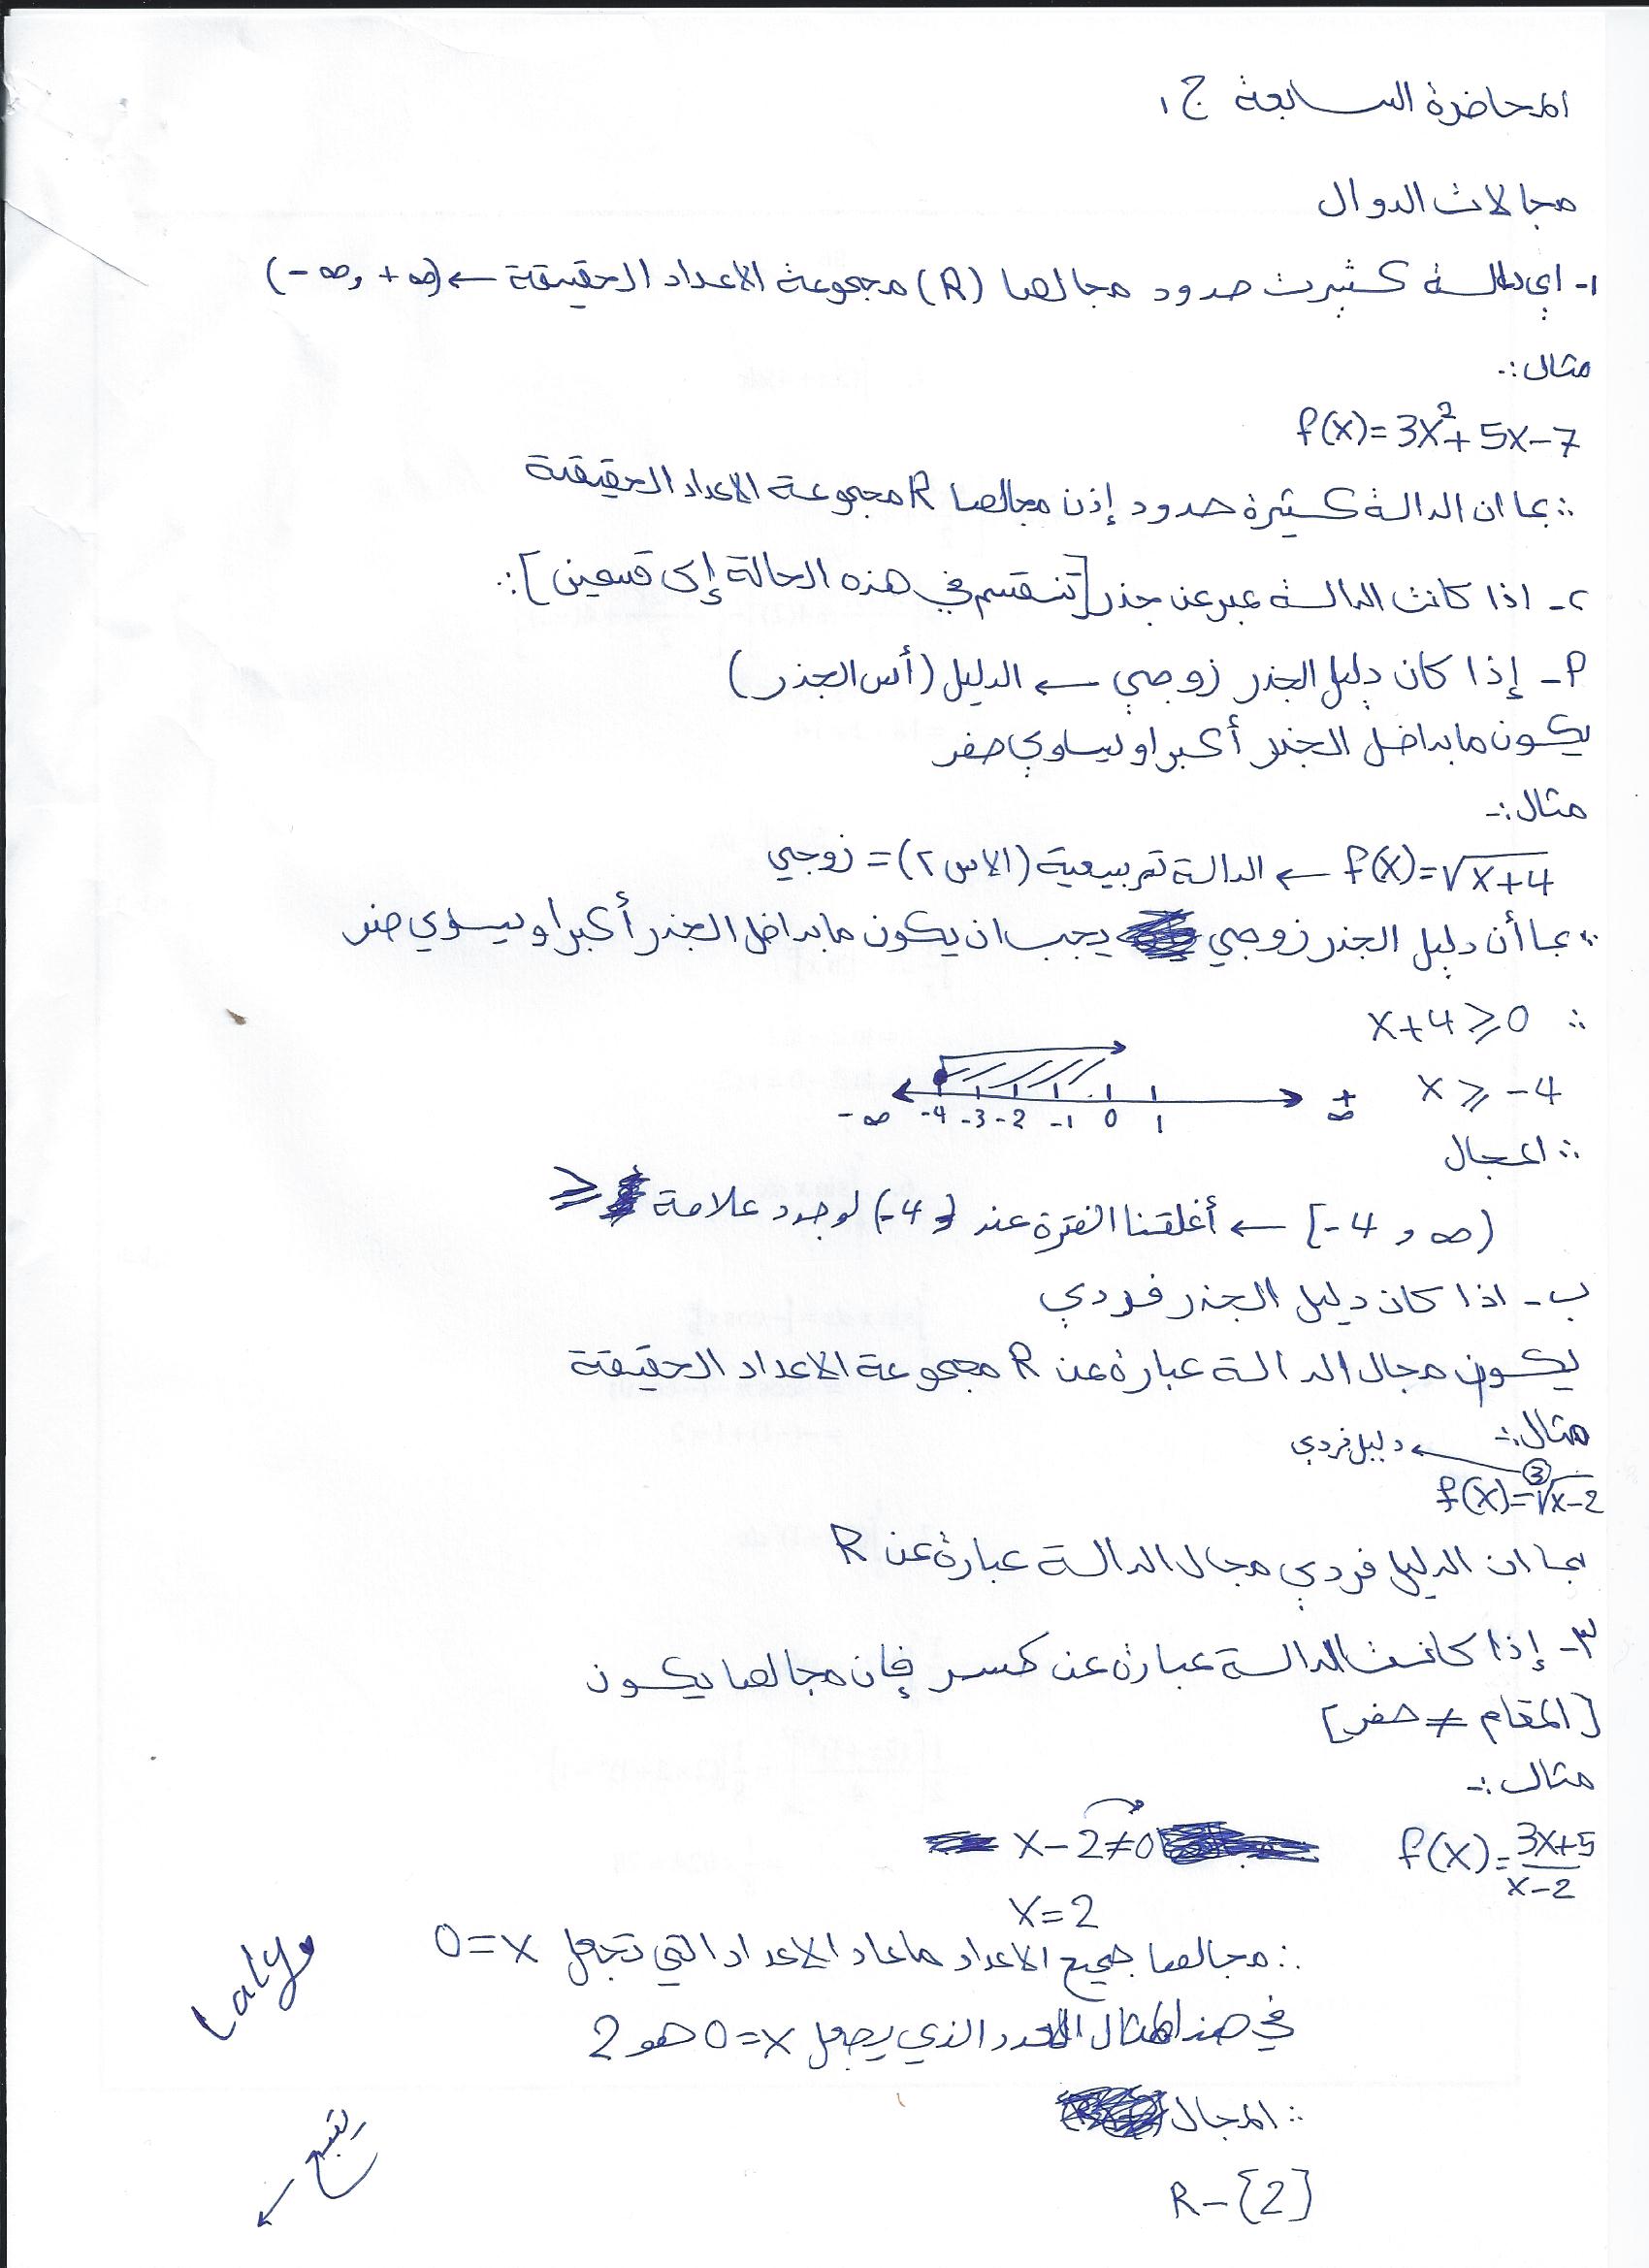 المحاضرة السابعة ج١
مجالات الدوال
١- اي دالة كثيرت حدود مجالها (R) مجموعة الاعداد الحقيقة ← (-∞, +∞)
مثال:-
f(x)=3x²+5x-7
∴ بما ان الدالة كثيرة حدود إذن مجالها R مجموعة الاعداد الحقيقة
٢- اذا كانت الدالة عبر عن جذر [تنقسم في هذه الحالة إلى قسمين]:
P- إذا كان دليل الجذر زوجي ← الدليل (أس الجذر)
يكون مابداخل الجذر أكبر او يساوي صفر
مثال:-
f(x)=√x+4 ← الدالة تربيعية (الاس ٢) = زوجي
∴ بما أن دليل الجذر زوجي يجب ان يكون مابداخل الجذر أكبر او يساوي صفر
∴ x+4≥0
x≥-4
-∞ -4 -3 -2 -1 0 1 +∞
∴ المجال
[-4, ∞) ← أغلقنا الفترة عند (-4) لوجود علامة ≥
ب- اذا كان دليل الجذر فردي
يكون مجال الدالة عبارة عن R مجموعة الاعداد الحقيقة
مثال:-
دليل فردي
f(x)=³√x-2
بما ان الدليل فردي مجال الدالة عبارة عن R
٣- إذا كانت الدالة عبارة عن كسر فإن مجالها يكون
[المقام ≠ صفر]
مثال:-
f(x)=3x+5/x-2 x-2≠0
x=2
∴ مجالها جميع الاعداد ماعاد الاعداد التي تجعل x=0
في هذا المثال العدد الذي يجعل x=0 هو 2
∴ المجال
R-{2}
Laly
يتبع ←